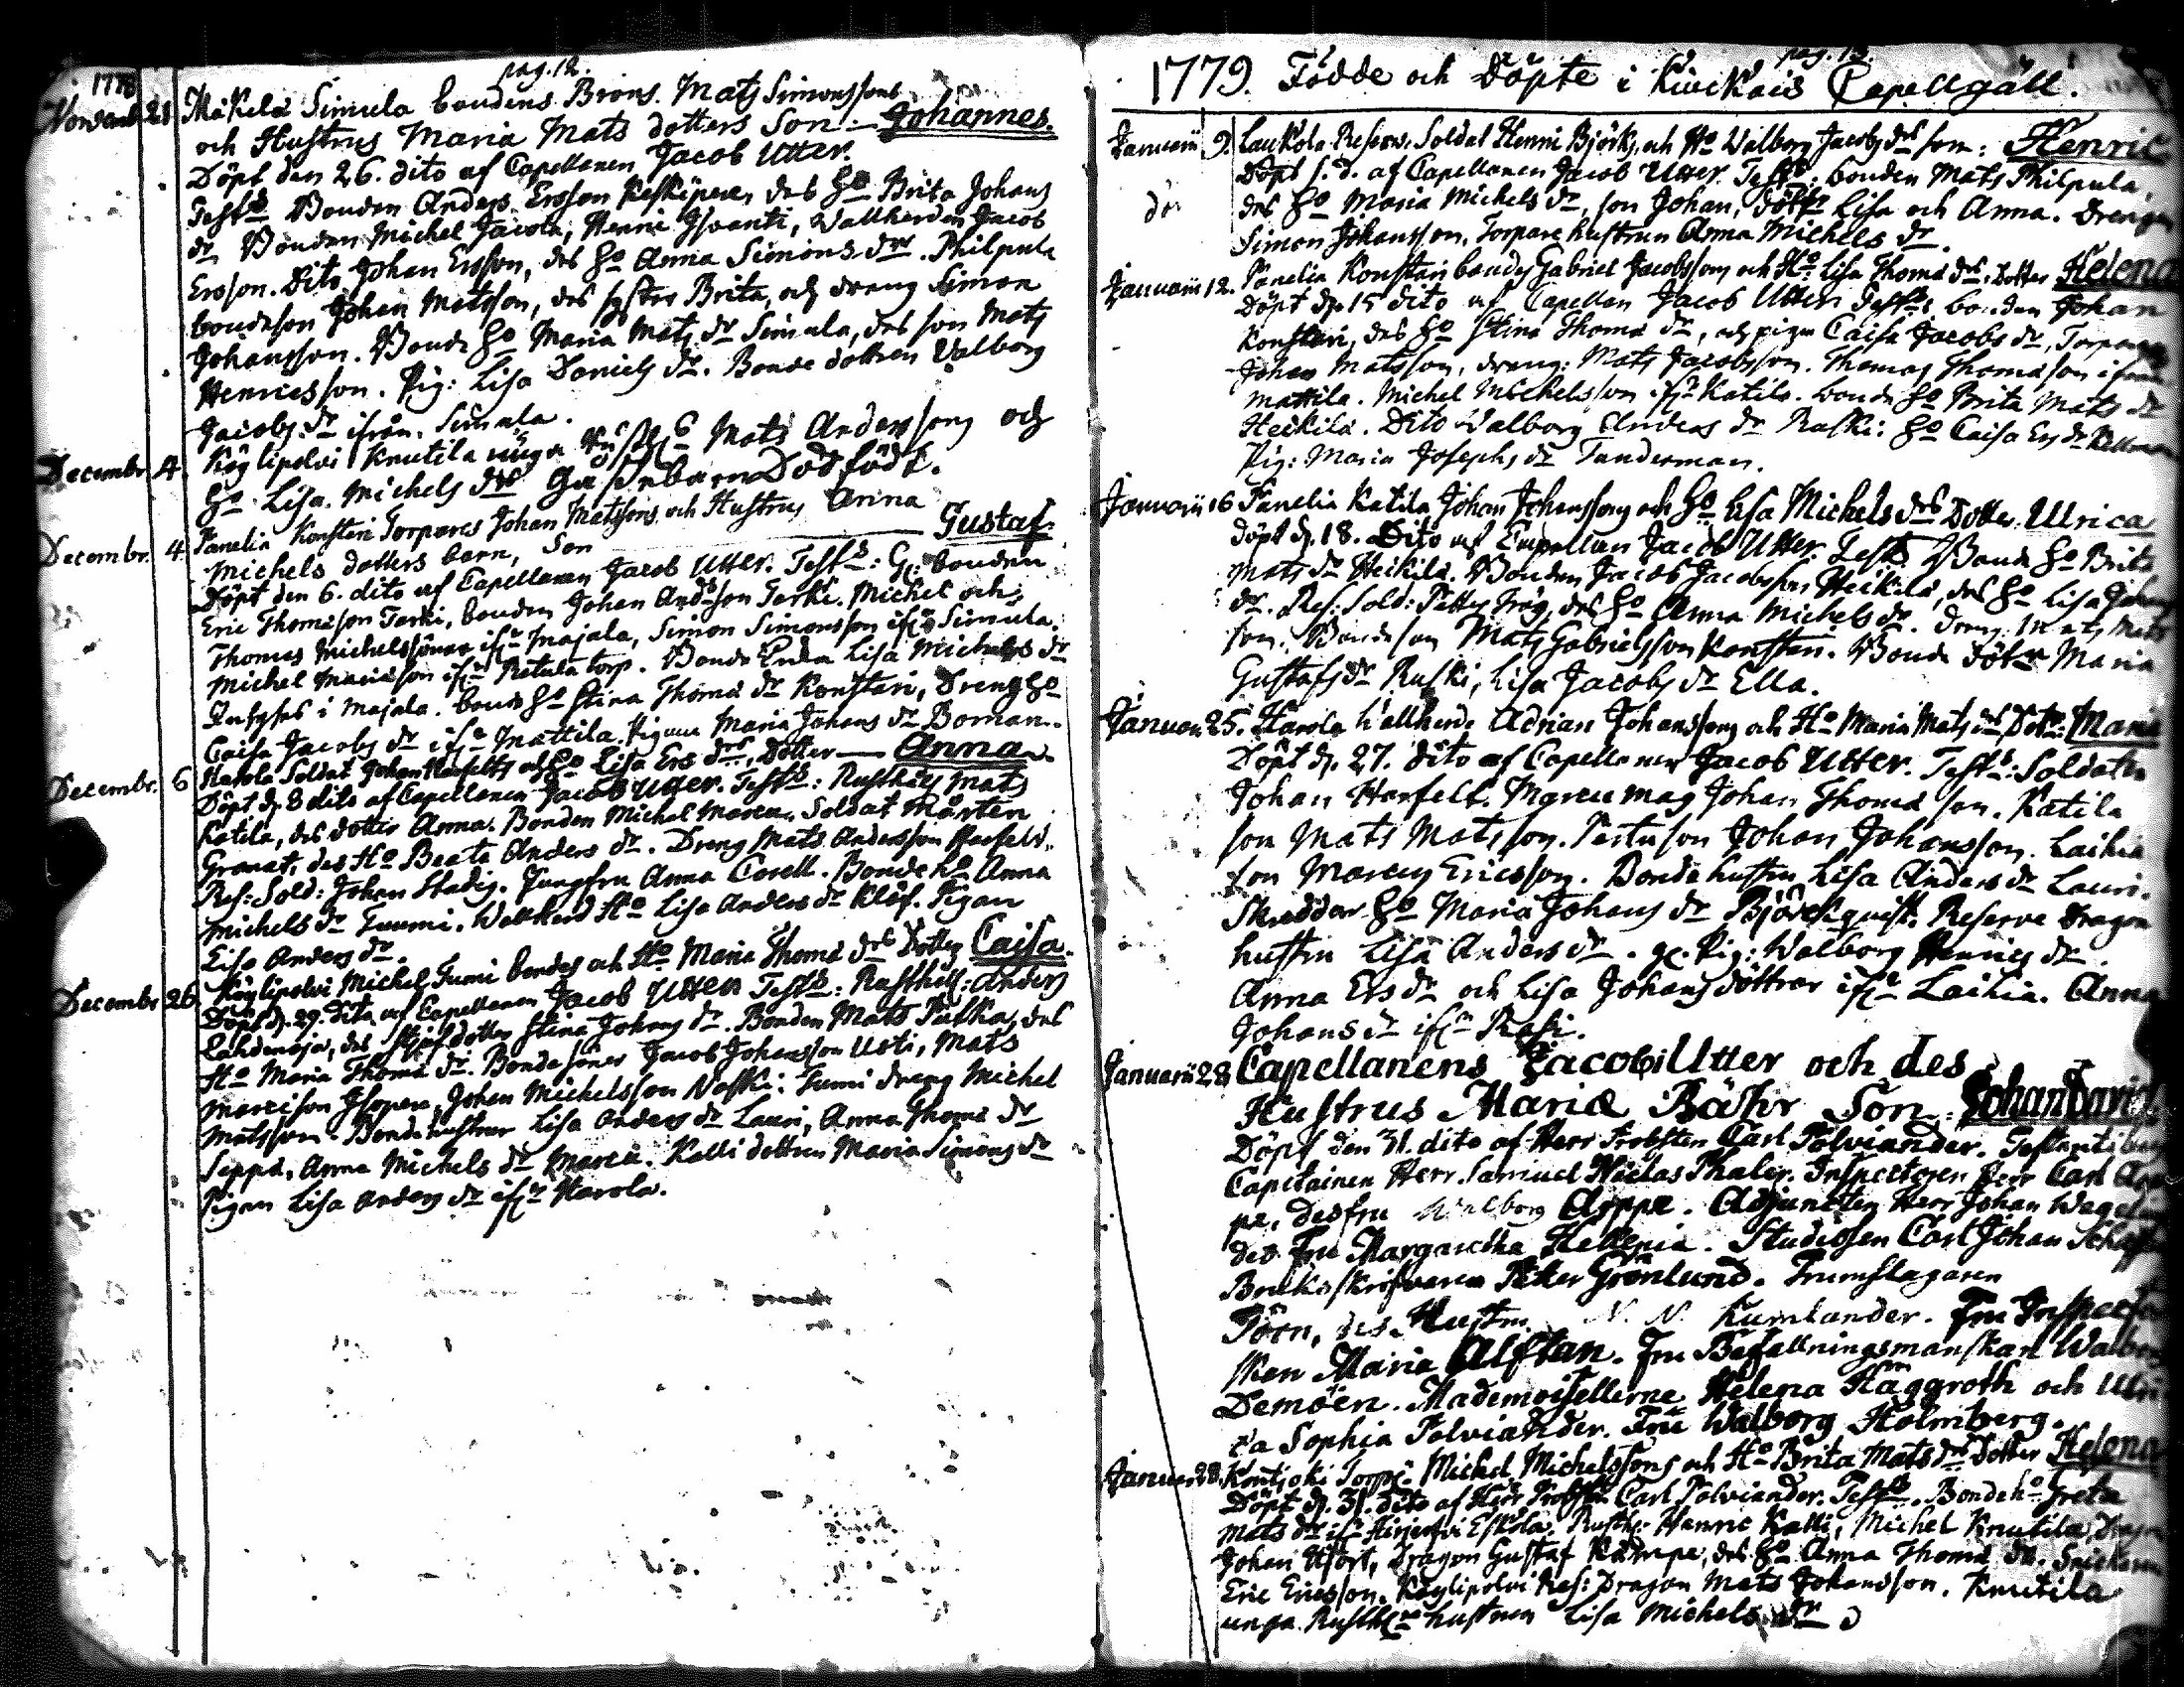 pag. 12.
1778
Novemb. 21 Mäkelä Simula bondens Brors. Mats Simonssons
och Hustrus Maria Mats dotters Son. Johannes.
Döpt den 26. dito af Capellanen Jacob Utter.
Test: Bonden Anders Ersson des Ho Brita Johans
dr Bonden Michel Jacola, Henric Wallherden Jacob
Ersson. Dito Johan Ersson, des Ho Anna Simons dr. Philpula
bondeson Johan Matsson, des syster Brita, och dreng Simon
Johansson. Bonde Ho Maria Mats dr Simula, des son Mats
Henricsson. Pig: Lisa Daniels dr. Bonde dottren Valborg
Jacobs dr ifrån Simula.
Decembr. 4. Köylipolvi Knutila unga Mats Anderssons och
Ho Lisa Michels drs Gåssebarn Dödfödt.
Decembr. 4 Panelia Konsteri Torpares Johan Matssons och Hustrus Anna
Michels dotters barn, Son Gustaf.
Döpt den 6. dito af Capellanen Jacob Utter. Test: G: bonden
Eric Thomasson Tarki, bonden Johan Andsson Tarki. Michel och
Thomas Michelssöner ifr Majala, Simon Simonsson ifr Simula.
Michel ifr torp. Bonde Lisa Michels dr
i Majala. bonde Ho Stina Thoma dr Konsteri, Dreng Ho
Caisa Jacobs dr ifr Mattila. Pigan Maria Johans dr Boman.
Decembr. 6 Harola Soldat Johan Harfelts och Ho Lisa Ers drs, Dotter Anna.
Döpt d. 8 dito af Capellanen Jacob Utter. Test: Rusthåll Mats
Katila, des dotter Anna. Bonden Michel Marcu. Soldat Mårten
Granat, des Ho Beata Anders dr. Dreng Mats Andersson
Res: Sold: Johan Stadig. Jungfru Anna Corell. Bonde ho Anna
Michels dr Tuumi. Wallherd Ho Lisa Anders dr Klöf. Pigan
Lisa Anders dr.
Decembr 26 Köylipolvi Michel Tumi bondes och Ho Maria Thoma drs Dotter Caisa.
Döpt d. 29. dito af Capellanen Jacob Utter Test: Rusthåll: Anders
Lähdenoja, des dotter Stina Johans dr. Bonden Mats Putka, des
Ho Maria Thoma dr. Bondesöner Jacob Johansson Uoti, Mats
Marcison Johan Michelsson Tumi dreng Michel
Matsson. Bondehustrur Lisa Anders dr Lauri, Anna Thoma dr
Seppä, Anna Michels dr Marcu. Kalli dottren Maria Simons dr
Pigan Lisa Anders dr ifr Harola.
pag. 13.
1779. Födde och Döpte i Kiuckais Capellgäll.
Januarii 9. Laukola Reserv. Soldat Henric Björks, och Ho Walborg Jacobs drs son: Henric
Döpt s. d. af Capellanen Jacob Utter. Test: bonden Mats Philpula,
des Ho Maria Michels dr, son Johan, dött: Lisa och Anna. Drengen
Simon Johansson, Torpare hustrun Anna Michels dr.
Januarii 12. Panelia Konstari bondes Gabriel Jacobssons och Ho Lisa Thoma drs, Dotter Helena
Döpt d. 15 dito af Capellan Jacob Utter Test: bonden Johan
Konstari, des Ho Stina Thoma dr, och pigan Caisa Jacobs dr, Torparen
Johan Matsson, dreng: Mats Jacobsson. Thomas Thomasson ifrån
Mattila. Michel Michelsson ifr Katila. bonde Ho Brita Mats dr
Heikilä. Dito Walborg Anders dr Raski: Ho Caisa Ers dr
Pig: Maria Josephs dr Tunderman.
Januarii 16 Panelia Katila Johan Johanssons och Ho Lisa Michels drs Dotter. Ulrica
Döpt d. 18. Dito af Capellan Jacob Utter. Test: Bonde Ho Brita
Mats dr Heikilä. Bonden Jacob Jacobsson Heikilä, des Ho Lisa Johans
dr. Res: Sold: Petter des Ho Anna Michels dr. Dreng Mats Mats
son. Bondeson Mats Gabrielsson Konstari. Bonde döttr Maria
Gustafs dr Ruski, Lisa Jacobs dr Ella.
Januarii 25. Harola Wallherde Adrian Johanssons och Ho Maria Mats drs Dotter: Maria
Döpt d. 27. dito af Capellanen Jacob Utter. Test: Soldaten
Johan Harfelt. Marcu mag Johan Thoma son. Katila
son Mats Matsson. Pertu son Johan Johansson. Laihia
son Marcus Ericsson. Bonde hustru Lisa Anders dr Lauri.
Skreddar Ho Maria Johans dr Björckqvist. Reserve Dragon
hustru Lisa Anders dr. gl. Pig: Walborg Henrics dr.
Anna Ers dr och Lisa Johans döttrar ifr Laihia. Anna
Johans dr ifr Rasi.
Januarii 28 Capellanens Jacobi Utter och des
Hustrus Maria Bähr Son. Johan David
Döpt den 31. dito af Herr Probsten Carl Polviander. Testantibus
Capitainen Herr Samuel Niclas Thaler. Inspectoren Herr Carl Arp
pe, des fru Walborg Arppe. Adjuncten Herr Johan
des Fru Margaretha Hellenia. Studiosen Carl Johan
Bruksskrifvaren Petter Grönlund. Trumslagaren
Pöön, des Hustru N. N. Kumlander. Fru Inspecto
rskan Maria Alftan. Fru Befallningsmanskan Walborg
Demoen. Mademoisellerne Helena Häggroth och Ulri
ca Sophia Polviander. Fru Walborg Holmberg.
Januar. 28. Kontioki Torp: Michel Michelssons och Ho Brita Mats drs Dotter Helena
Döpt d. 31. dito af Herr Probsten Carl Polviander. Test: Bonde ho Greta
Mats dr ifr Hinjerfvi Eskola. Rusth: Henric Kalli, Michel Knutila
Johan Hjort, Dragon Gustaf Kämpe, des Ho Anna Thoma dr.
Eric Ericsson. Köylipolvi Res: Dragon Mats Johansson. Knutila
unga Rusth: hustrun Lisa Michels dr